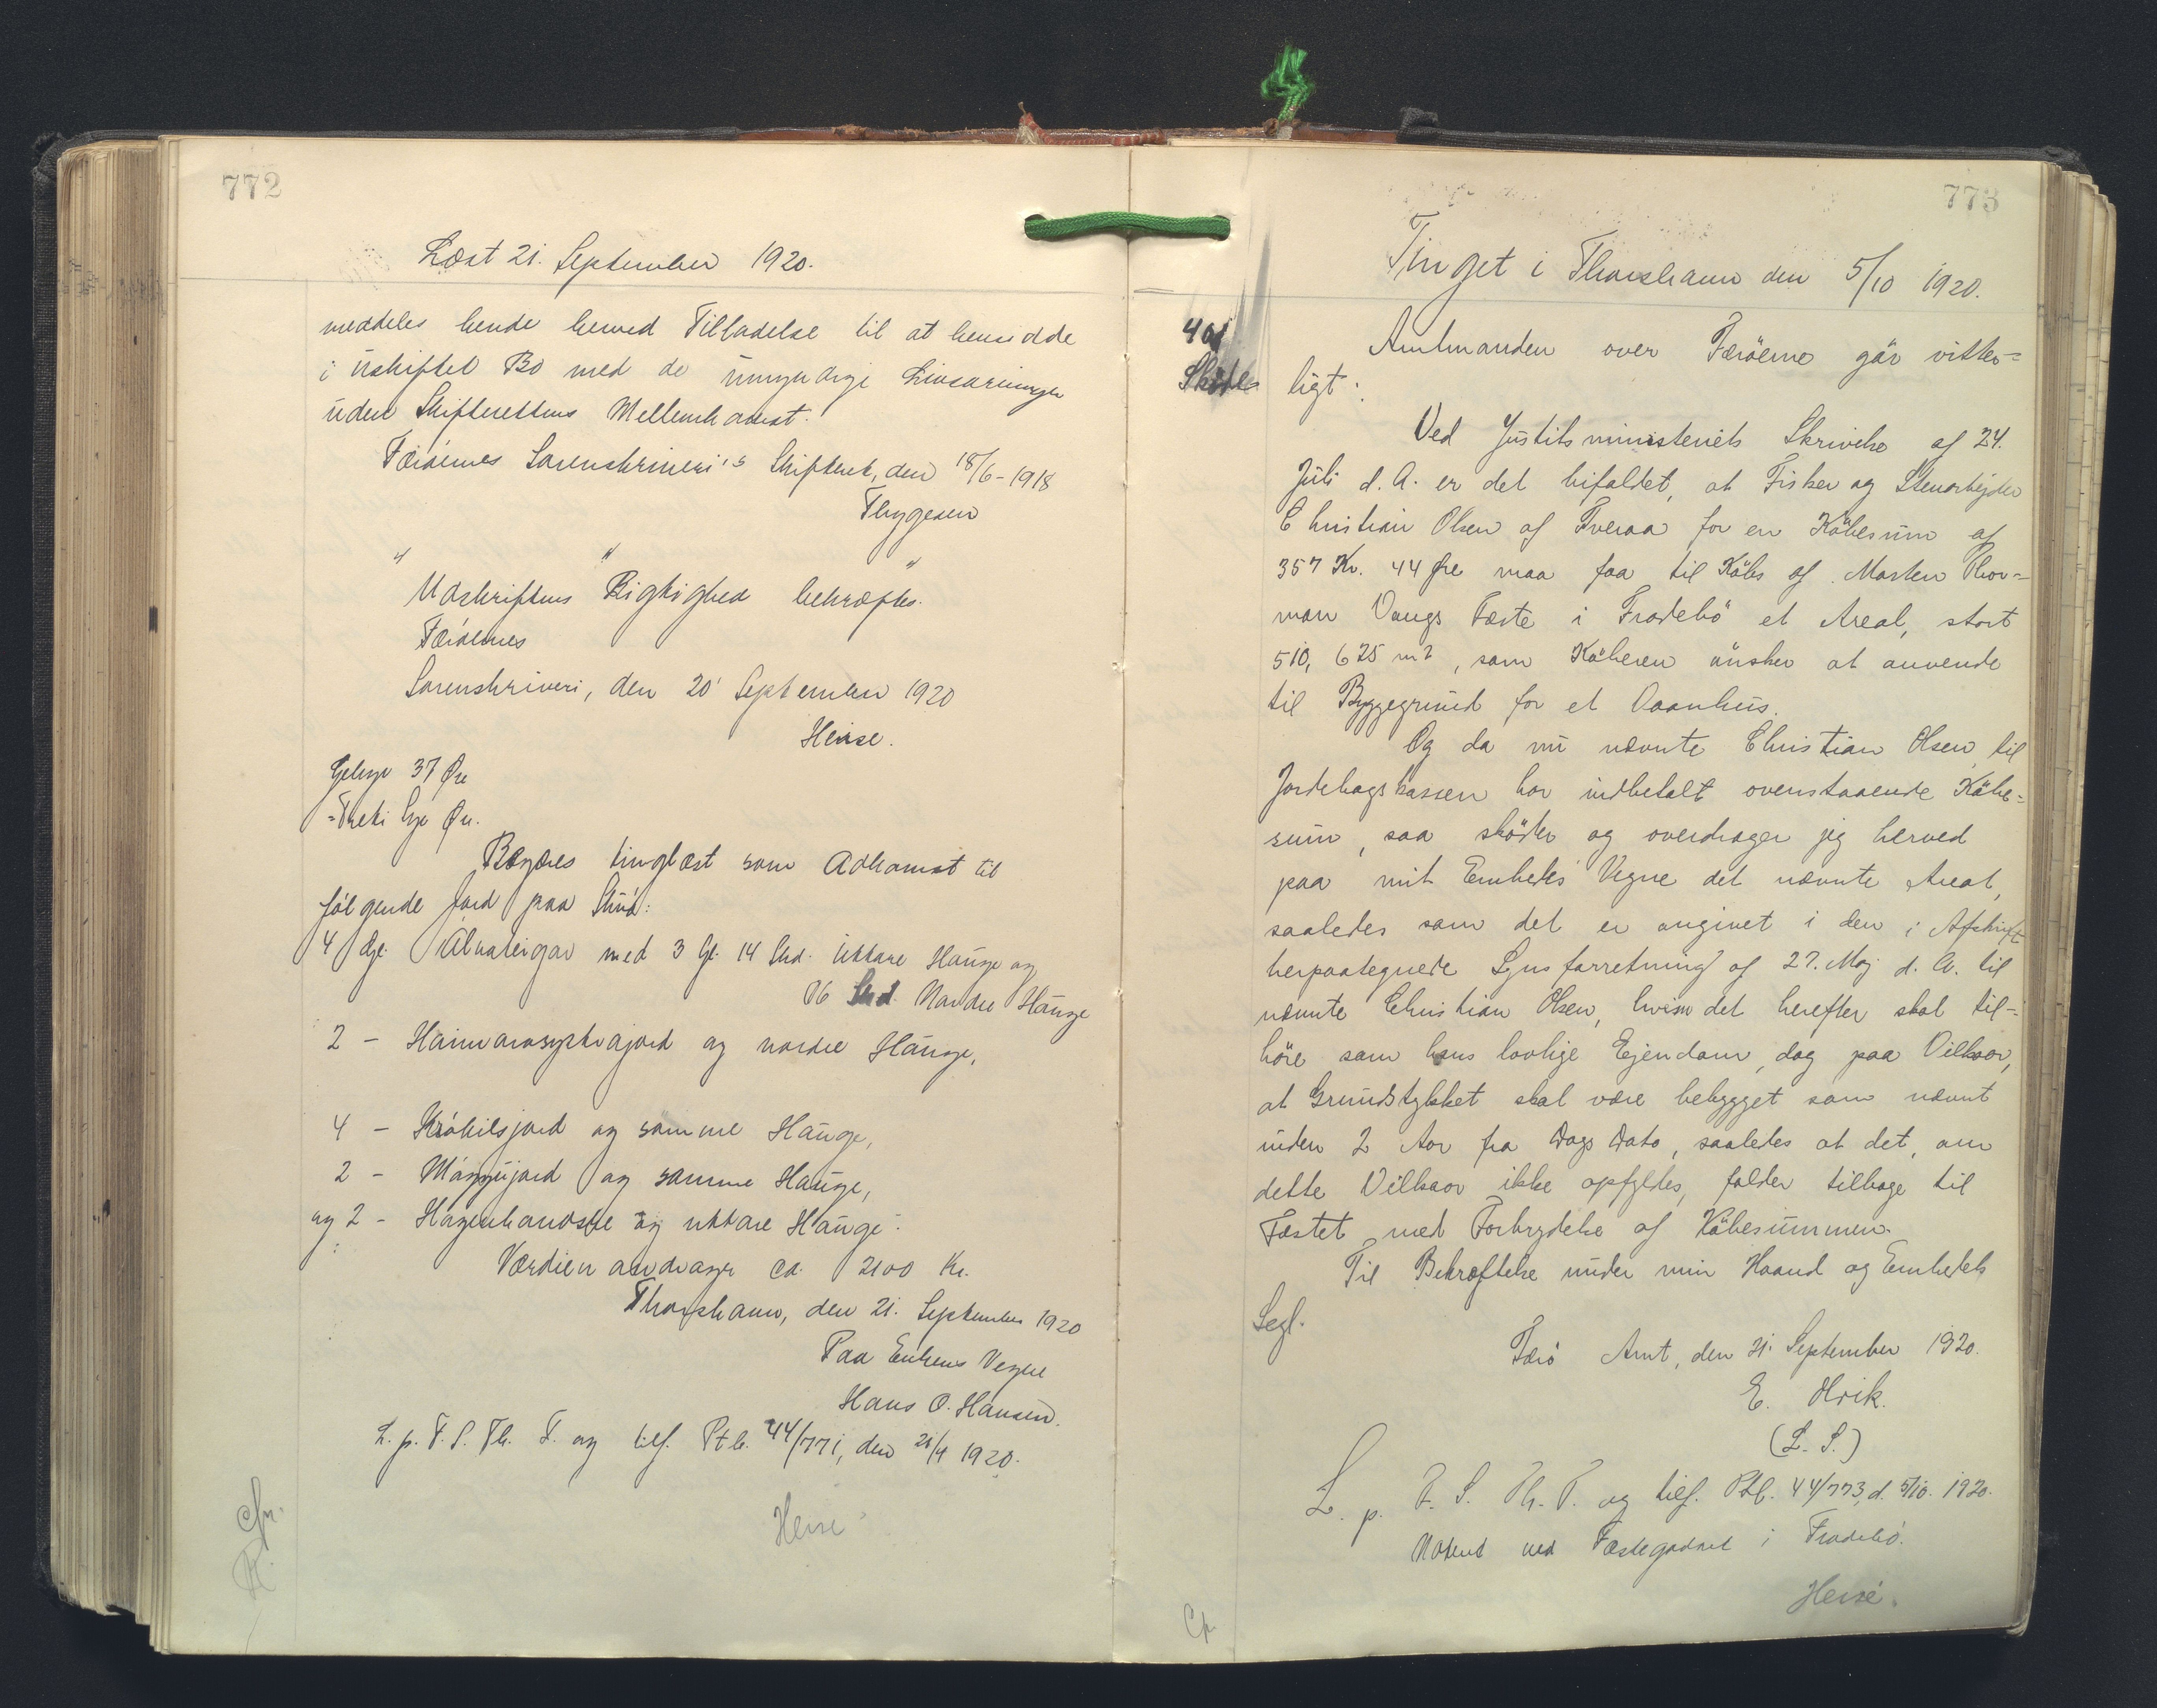 772
Læst 21. September 1920.
meddeles hende herved Tilladelse til at hensidde
i uskiftet Bo med de umyndige Livsarvinger
uden Skifterettens Mellemkomst.
Færøernes Sorenskriveri's Skifteret, den 18/6-1918
Thygesen
" " "
Udskriftens Rigtighed bekræftes.
Færøernes
Sorenskriveri, den 20' September 1920
Heise.
Gebyr 37 Øre
=Treti Syv Øre.
Begæres tinglæst som Adkomst til
følgende Jord paa Skúó:
4 Gl. med 3 Gl. 14 Skd. úttare Hauge og
16 Skd. Nordre Hauge
2 - og nordre Hauge,
4 - Krókilsjord og samme Hauge,
2 - og samme Hauge,
og 2 - og uttare Hauge.
Værdien andrager ca. 2100 Kr.
Thorshavn, den 21. September 1920
Paa Enkens Vegne
Hans O. Hansen.
L. p. F. S. Th. T. og tilf. Ptb. 44/771, den 1920.
Heise
cfr.
773
Tinget i Thorshavn den 5/10 1920.
401
Skøde
Amtmanden over Færöerne gör vitter=
ligt:
Ved Justitsministeriets Skrivelse af 24.
Juli d. A. er det bifaldet, at Fisker og Stenarbejder
Christian Olsen af Tveraa for en Köbesum af
357 Kr. 44 Øre maa faa til Köbs af Morten Thor=
mar Vangs Fæste i Frodebö et Areal, stort
510,625 m², som Köberen önsker at anvende
til Byggegrund for et Vaanhus.
Og da nu nævnte Christian Olsen til
Jordebogskassen har indbetalt ovenstaaende Köbe=
sum, saa sköder og overdrager jeg herved
paa mit Embedes Vegne det nævnte Areal,
saaledes som det er angivet i den i Afskrift
herpaategnede Synsforretning af 27. Maj d. A. til
nævnte Christian Olsen, hvem det herefter skal til=
höre som hans lovlige Ejendom, dog paa Vilkaar,
at Grundstykket skal være bebygget som nævnt
inden 2 Aar fra Dags Dato, saaledes at det, om
dette Vilkaar ikke opfyldes, falder tilbage til
Fæstet med Forbrydelse af Köbesummen.
Til Bekræftelse under min Haand og Embedets
Segl.
Færö Amt, den 21. September 1920.
(L. S.)
L. p. F. S. Th. T. og tilf. Ptb. 44/773, d. 5/10. 1920.
Noteret ved Fæstegodset i Frodebö.
Heise.